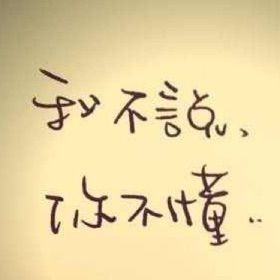 我不說、
你不懂..